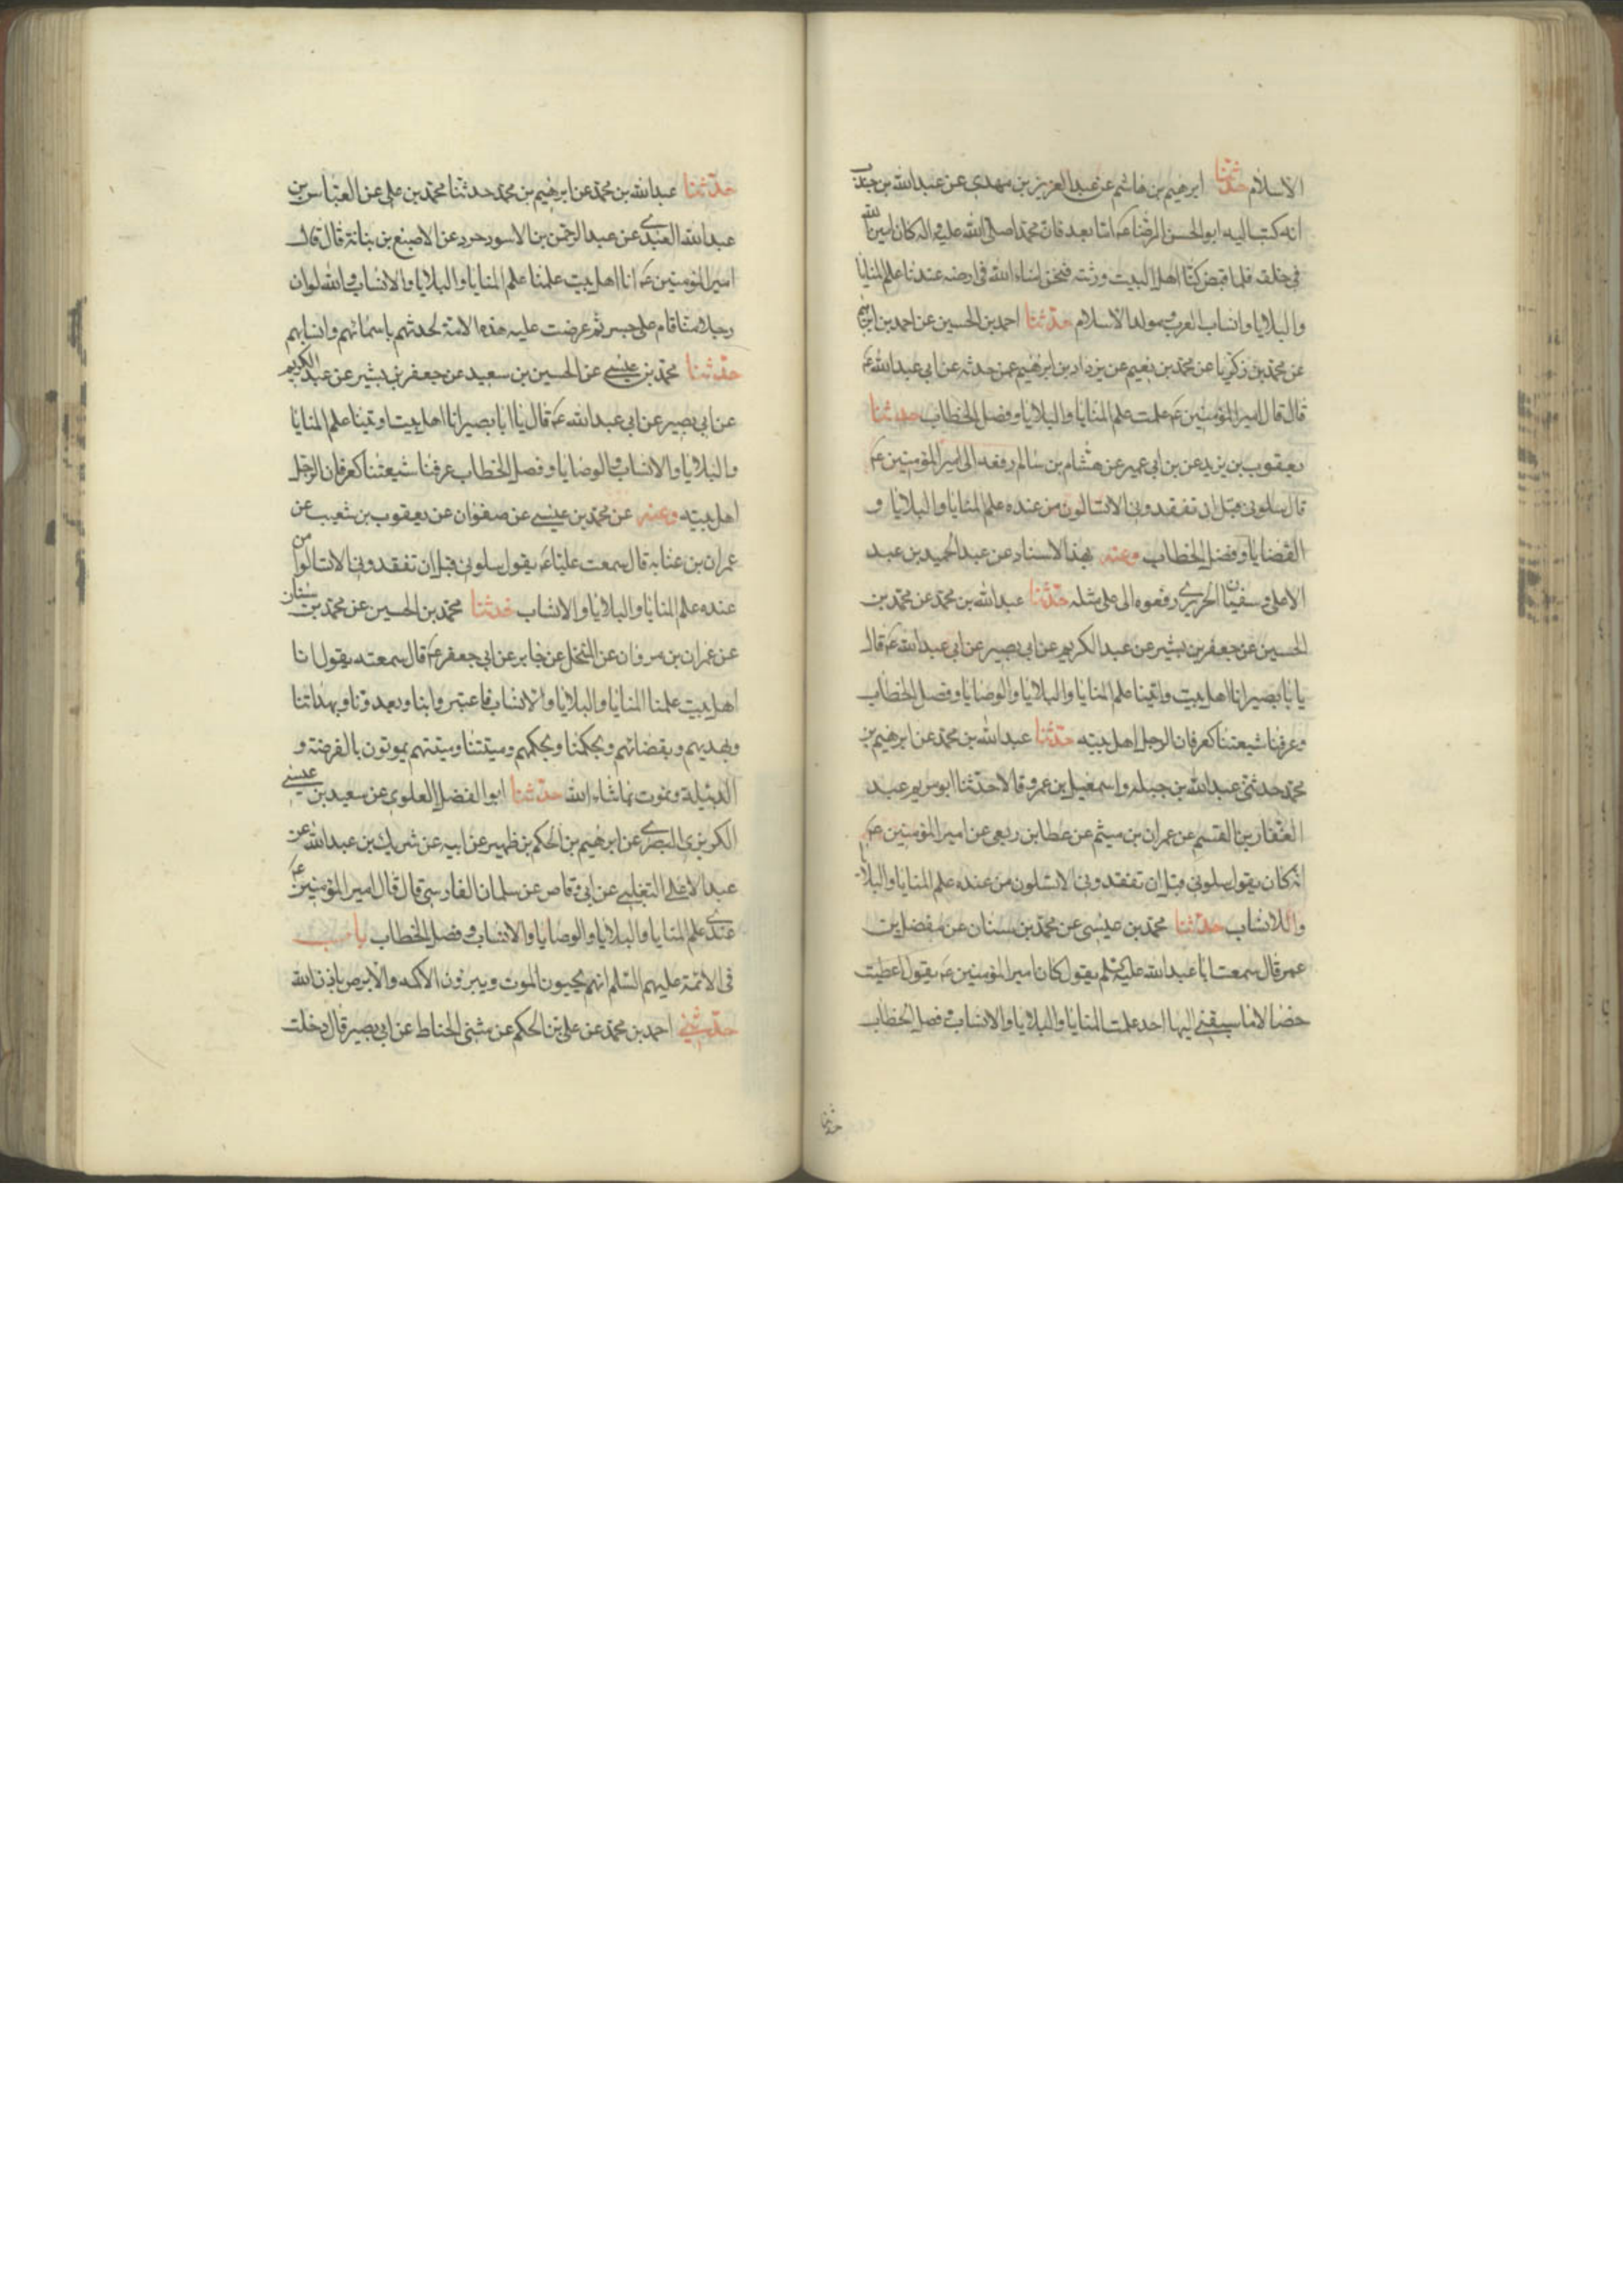 الاسلام حدثنا ابرهيم بن هاشم عن عبد العزيز بن مهدى عن عبد الله بن جندب
انه كتب اليه ابو الحسن الرضا عم اما بعد فان محمدا صلى الله عليه واله كان امين الله
فى خلقه فلما قبض كنا اهل البيت ورثته فنحن امناء الله فى ارضه عندنا علم المنايا
والبلايا وانساب العرب ومولد الاسلام حدثنا احمد بن الحسين عن احمد بن ابرهيم
عن محمد بن زكريا عن محمد بن نعيم عن يزداد بن ابرهيم عمن حدثه عن ابى عبد الله عم
قال قال امير المؤمنين عم علمت علم المنايا والبلايا وفصل الخطاب حدثنا
يعقوب بن يزيد عن بن ابى عمير عن هشام بن سالم رفعه الى امير المؤمنين عم
قال سلونى قبل ان تفقدونى الا تسالون من عنده علم المنايا والبلايا و
القضايا وفصل الخطاب وعنه بهذا الاسناد عن عبد الحميد بن عبد
الاعلى وسفيان الحريرى رفعوه الى على مثله حدثنا عبد الله بن محمد عن محمد بن
الحسين عن جعفر بن بشير عن عبد الكريم عن ابى بصير عن ابى عبد الله عم قال
يا با بصير انا اهل بيت واتينا علم المنايا والبلايا والوصايا وفصل الخطاب
وعرفنا شيعتنا كعرفان الرجل اهل بيته حدثنا عبد الله بن محمد عن ابرهيم بن
محمد حدثنى عبد الله بن جبلة واسمعيل بن عمرو قالا حدثنا ابو مريم عبد
الغفار بن القسم عن عمران بن ميثم عن عطا بن ربعى عن امير المؤمنين عم
انه كان يقول سلونى قبل ان تفقدونى الا تسئلون من عنده علم المنايا والبلايا
واللانساب حدثنا محمد بن عيسى عن محمد بن سنان عن مفضل بن
عمر قال سمعت ابا عبد الله عليه السلم يقول كان امير المؤمنين عم يقول اعطيت
خصالا ما سبقنى اليها احد علمت المنايا والبلايا والانساب وفصل الخطاب
حدثنا
حدثنا عبد الله بن محمد عن ابرهيم بن محمد حدثنا محمد بن على عن العباس بن
عبد الله العبدى عن عبد الرحمن بن الاسود حرد عن الاصبغ بن بنانة قال قال
امير المؤمنين عم انا اهل بيت علمنا علم المنايا والبلايا والانساب والله لو ان
رجلا منا قام على جسر ثم عرضت عليه هذه الامة لحدثهم باسمائهم وانسابهم
حدثنا محمد بن عيسى عن الحسين بن سعيد عن جعفر بن بشير عن عبد الكريم
عن ابى بصير عن ابى عبد الله عم قال يا ابا بصير انا اهل بيت اوتينا علم المنايا
والبلايا والانساب والوصايا وفصل الخطاب عرفنا شيعتنا كعرفان الرجل
اهل بيته وعنه عن محمد بن عيسى عن صفوان عن يعقوب بن شعيب عن
عمران بن عثابه قال سمعت عليا عم يقول سلونى قبل ان تفقدونى الا تسالوا من
عنده علم المنايا والبلايا والانساب حدثنا محمد بن الحسين عن محمد بن سنان
عن عمران بن مروان عن المنخل عن جابر عن ابى جعفر عم قال سمعته يقول انا
اهل بيت علمنا المنايا والبلايا والانساب فاعتبروا بنا وبعدونا وبهداتنا
وبهديهم وبقضائهم وبحكمنا وبحكمهم وميتتنا وميتتهم يموتون بالقرحة و
الدبيلة ونموت بما شاء الله حدثنا ابو الفضل العلوى عن سعيد بن عيسى
الكربزى البصرى عن ابرهيم بن الحكم بن ظهير عن ابيه عن شريك بن عبد الله عن
عبد الاعلى التغلبى عن ابى وقاص عن سلمان الفارسى قال قال امير المؤمنين عم
عندى علم المنايا والبلايا والوصايا والانساب وفصل الخطاب باب
فى الائمة عليهم السلم انهم يحيون الموت ويبرؤن الاكمه والابرص باذن الله
حدثنى احمد بن محمد عن على بن الحكم عن مثنى الحناط عن ابى بصير قال دخلت